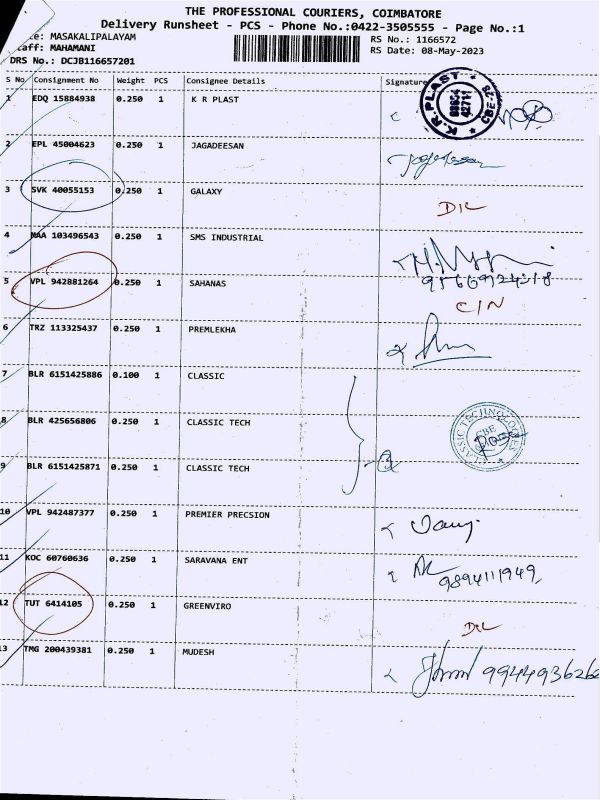 THE PROFESSIONAL COURIERS, COIMBATORE
Delivery Runsheet - PCS - Phone No.:0422-3505555 - Page No.:1
te: MASAKALIPALAYAM
taff: MAHAMANI
RS No.: 1166572
RS Date: 08-May-2023
DRS No.: DCJB116657201
S No Consignment No Weight PCS Consignee Details Signature
1 EDQ 15884938 0.250 1 K R PLAST
K.R PLAST CBE
2 EPL 45004623 0.250 1 JAGADEESAN
3 SVK 40055153 0.250 1 GALAXY
D/L
4 MAA 103496543 0.250 1 SMS INDUSTRIAL
5 VPL 942881264 0.250 1 SAHANAS
C/N
6 TRZ 113325437 0.250 1 PREMLEKHA
7 BLR 6151425886 0.100 1 CLASSIC
8 BLR 425656806 0.250 1 CLASSIC TECH
CLASSIC TECHNOLOGIES CBE
9 BLR 6151425871 0.250 1 CLASSIC TECH
10 VPL 942487377 0.250 1 PREMIER PRECSION
11 KOC 60760636 0.250 1 SARAVANA ENT
9894111949
12 TUT 6414105 0.250 1 GREENVIRO
D/L
13 TMG 200439381 0.250 1 MUDESH